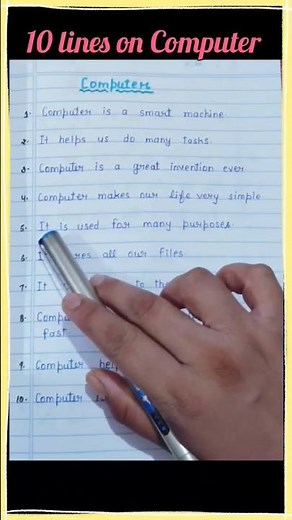 10 lines on Computer
Computer
1. Computer is a smart machine
2. It helps us do many tasks
3. Computer is a great invention ever
4. Computer makes our life very simple
5. It is used for many purposes.
6. all our files
7. It to
8.
fast
9. Computer
10. Computer